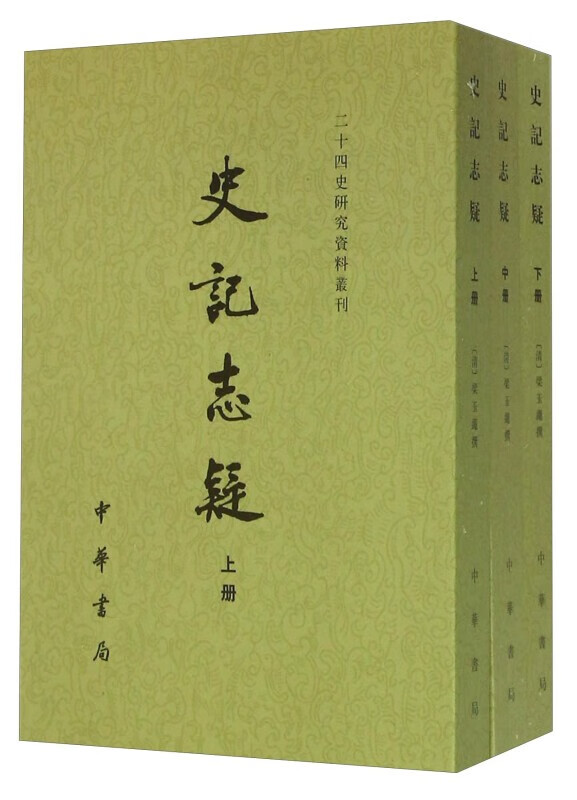 二十四史研究資料叢刊
史記志疑
上册
中華書局
史記志疑 上册 〔清〕梁玉繩撰 中華書局
史記志疑 中册 〔清〕梁玉繩撰 中華書局
史記志疑 下册 〔清〕梁玉繩撰 中華書局